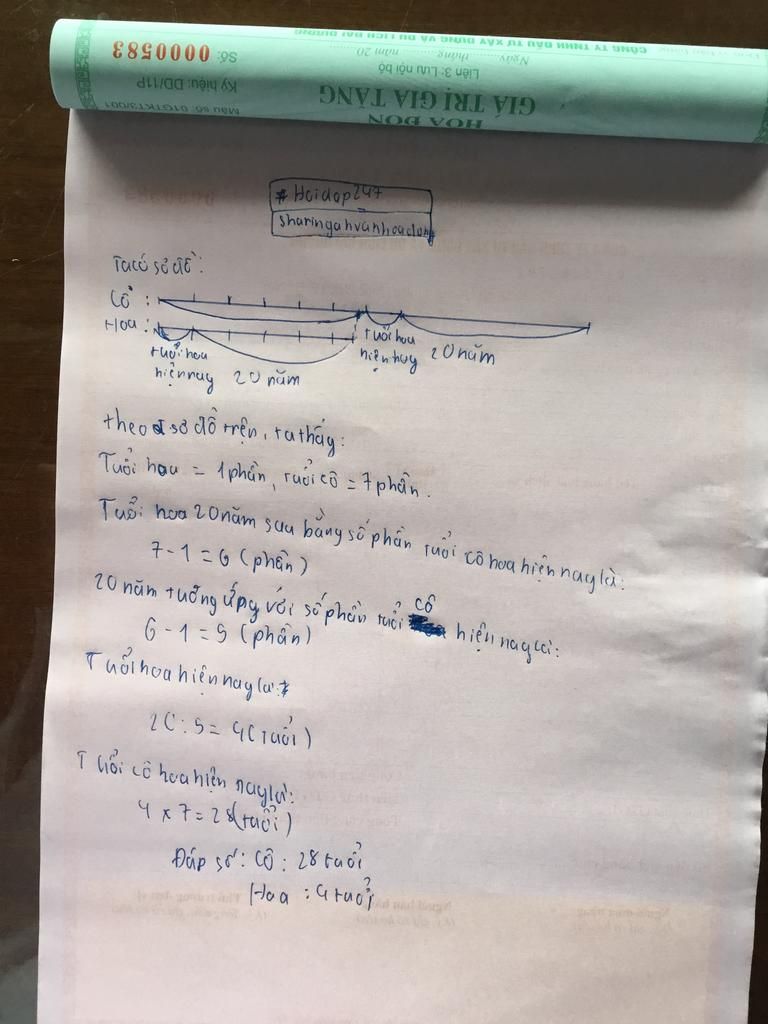 CÔNG TY TNHH ĐẦU TƯ XÂY DỰNG VÀ DU LỊCH ĐẠI DƯƠNG
Ngày ........ tháng ........ năm 20
Số: 0000583
Liên 3: Lưu nội bộ
Ký hiệu: DD/11P
GIÁ TRỊ GIA TĂNG
Mẫu số: 01GTKT3/001
HÓA ĐƠN
# Hoidap247
sharinganvanhoadong
Ta có sơ đồ:
Cô :
Hoa :
tuổi hoa hiện nay
20 năm
tuổi hoa hiện nay
20 năm
theo sơ đồ trên, ta thấy:
Tuổi hoa = 1 phần, tuổi cô = 7 phần.
Tuổi hoa 20 năm sau bằng số phần tuổi cô hoa hiện nay là:
7 - 1 = 6 (phần)
20 năm tương ứng với số phần tuổi cô hiện nay là:
6 - 1 = 5 (phần)
Tuổi hoa hiện nay là:
20 : 5 = 4 (tuổi)
Tuổi cô hoa hiện nay là:
4 x 7 = 28 (tuổi)
Đáp số: Cô : 28 tuổi
Hoa : 4 tuổi